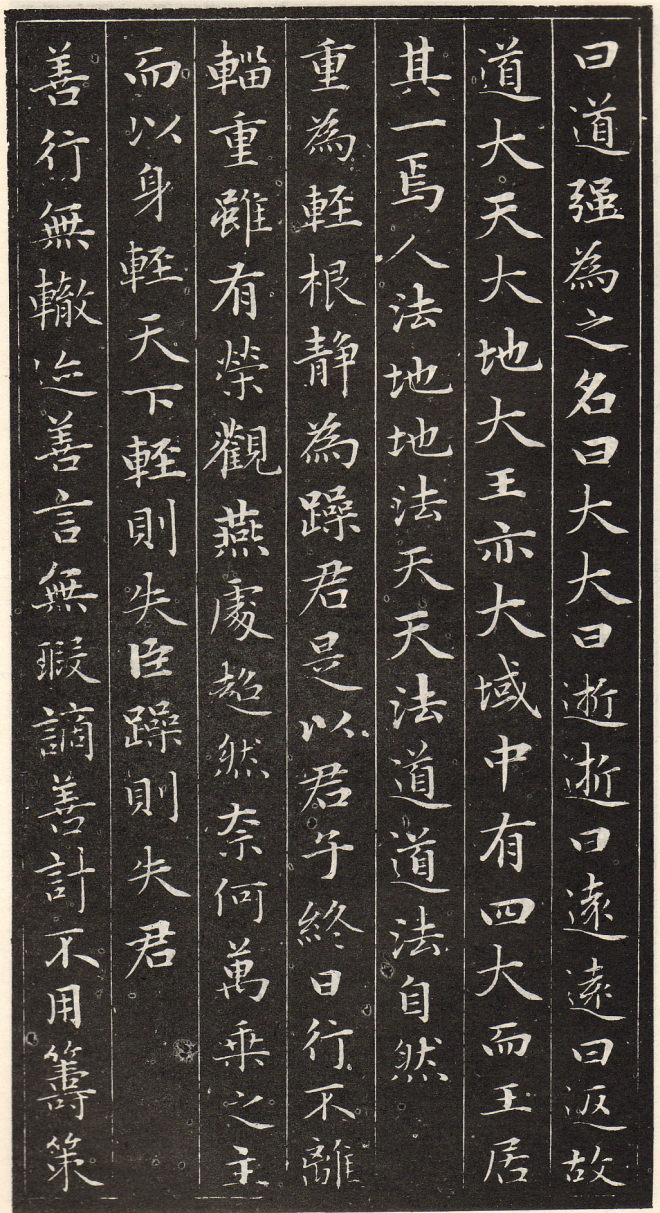 曰道強為之名曰大大曰逝逝曰遠遠曰返故
道大天大地大王亦大域中有四大而王居
其一焉人法地地法天天法道道法自然
重為輕根靜為躁君是以君子終日行不離
輜重雖有榮觀燕處超然奈何萬乘之主
而以身輕天下輕則失臣躁則失君
善行無轍迹善言無瑕謫善計不用籌策